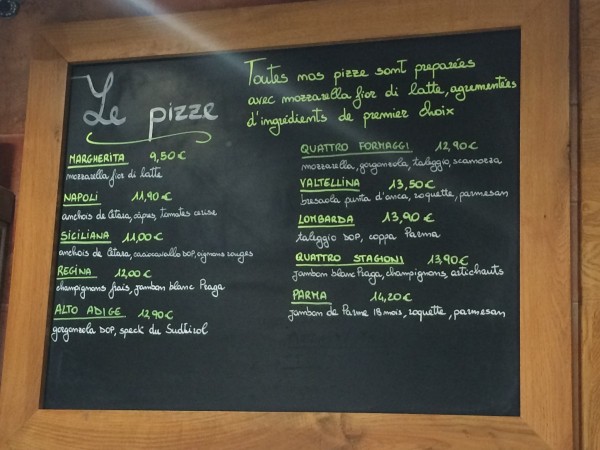 Le pizze
Toutes nos pizze sont preparées
avec mozzarella fior di latte, agrumentées
d'ingrédients de premier choix
MARGHERITA 9,50 €
mozzarella fior di latte
NAPOLI 11,90 €
anchois de Cetara, câpres, tomates cerise
SICILIANA 11,00 €
anchois de Cetara, caciocavallo DOP, oignons rouges
REGINA 12,00 €
champignons frais, jambon blanc Praga
ALTO ADIGE 12,90 €
gorgonzola DOP, speck du Sudtirol
QUATTRO FORMAGGI 12,90 €
mozzarella, gorgonzola, taleggio, scamorza
VALTELLINA 13,50 €
bresaola punta d'anca, roquette, parmesan
LOMBARDA 13,90 €
taleggio DOP, coppa Parma
QUATTRO STAGIONI 13,90 €
jambon blanc Praga, champignons, artichauts
PARMA 14,20 €
jambon de Parme 18 mois, roquette, parmesan